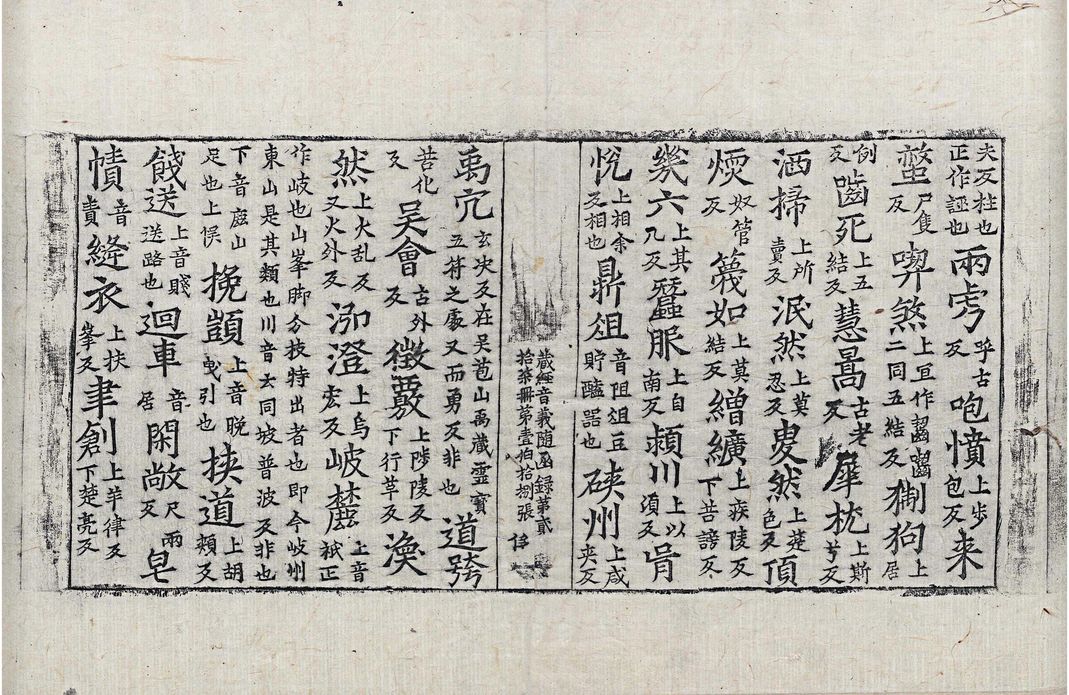 夫反柱也正作誣也兩虎呼古反咆憤上步包反来
螫尸隻反喫煞上冝作齧嚙二同五結反猘狗上居
例反嚙死上五結反慧暠古老反犀枕上斯兮反
洒掃上所賣反泯然上莫忍反㚇然上楚色反頂
煗奴管反篾如上莫結反繒纊上疾陵反下苦謗反
幾六上其几反蠶服上自南反熲川上以頃反肻
恱上相余反相也鼎俎音阻俎豆貯醢器也硤州上咸夾反
藏經音義隨函録第貳拾柒冊第壹伯拾捌張
禹穴玄决反在吴苞山禹藏靈寳五符之處又而勇反非也道跨
苦化反吴會古外反徵覈上陟陵反下行草反渙
然上火乱反又火外反泓澄上烏宏反岐麓上音祇正
作岐也山峯脚分枝特出者也即今岐州東山是其類也川音云同坡普波反非也
下音鹿山足也上悮挽顗上音晚曳引也挾道上胡頰反
餞送上音賤送路也迴車音居閑敞尺兩反皂
幘音責縫衣上扶峯反聿創上羊律反下楚亮反